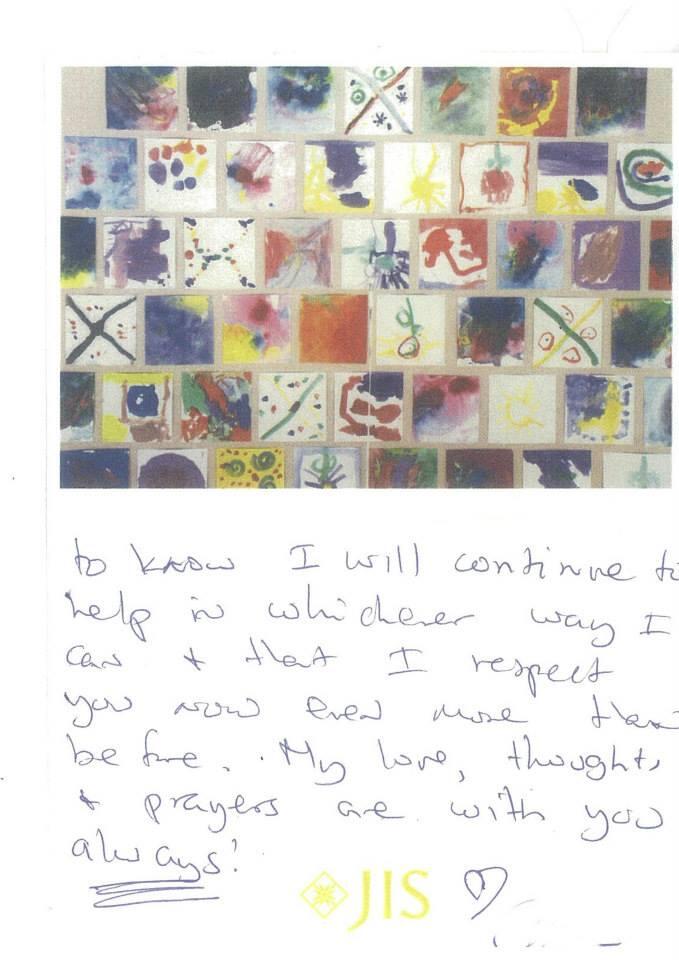 to know I will continue to
help in whichever way I
can & that I respect
you now even more than
before. My love, thoughts
& prayers are with you
always!
JIS